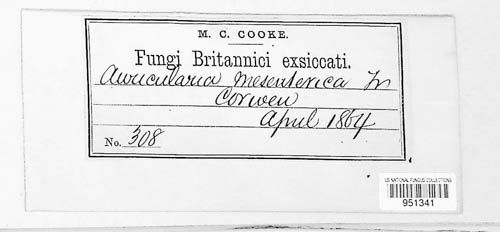 M. C. COOKE.
Fungi Britannici exsiccati.
Auricularia mesenterica Fr
Corwen
April 1864
No. 308
US NATIONAL FUNGUS COLLECTIONS
951341